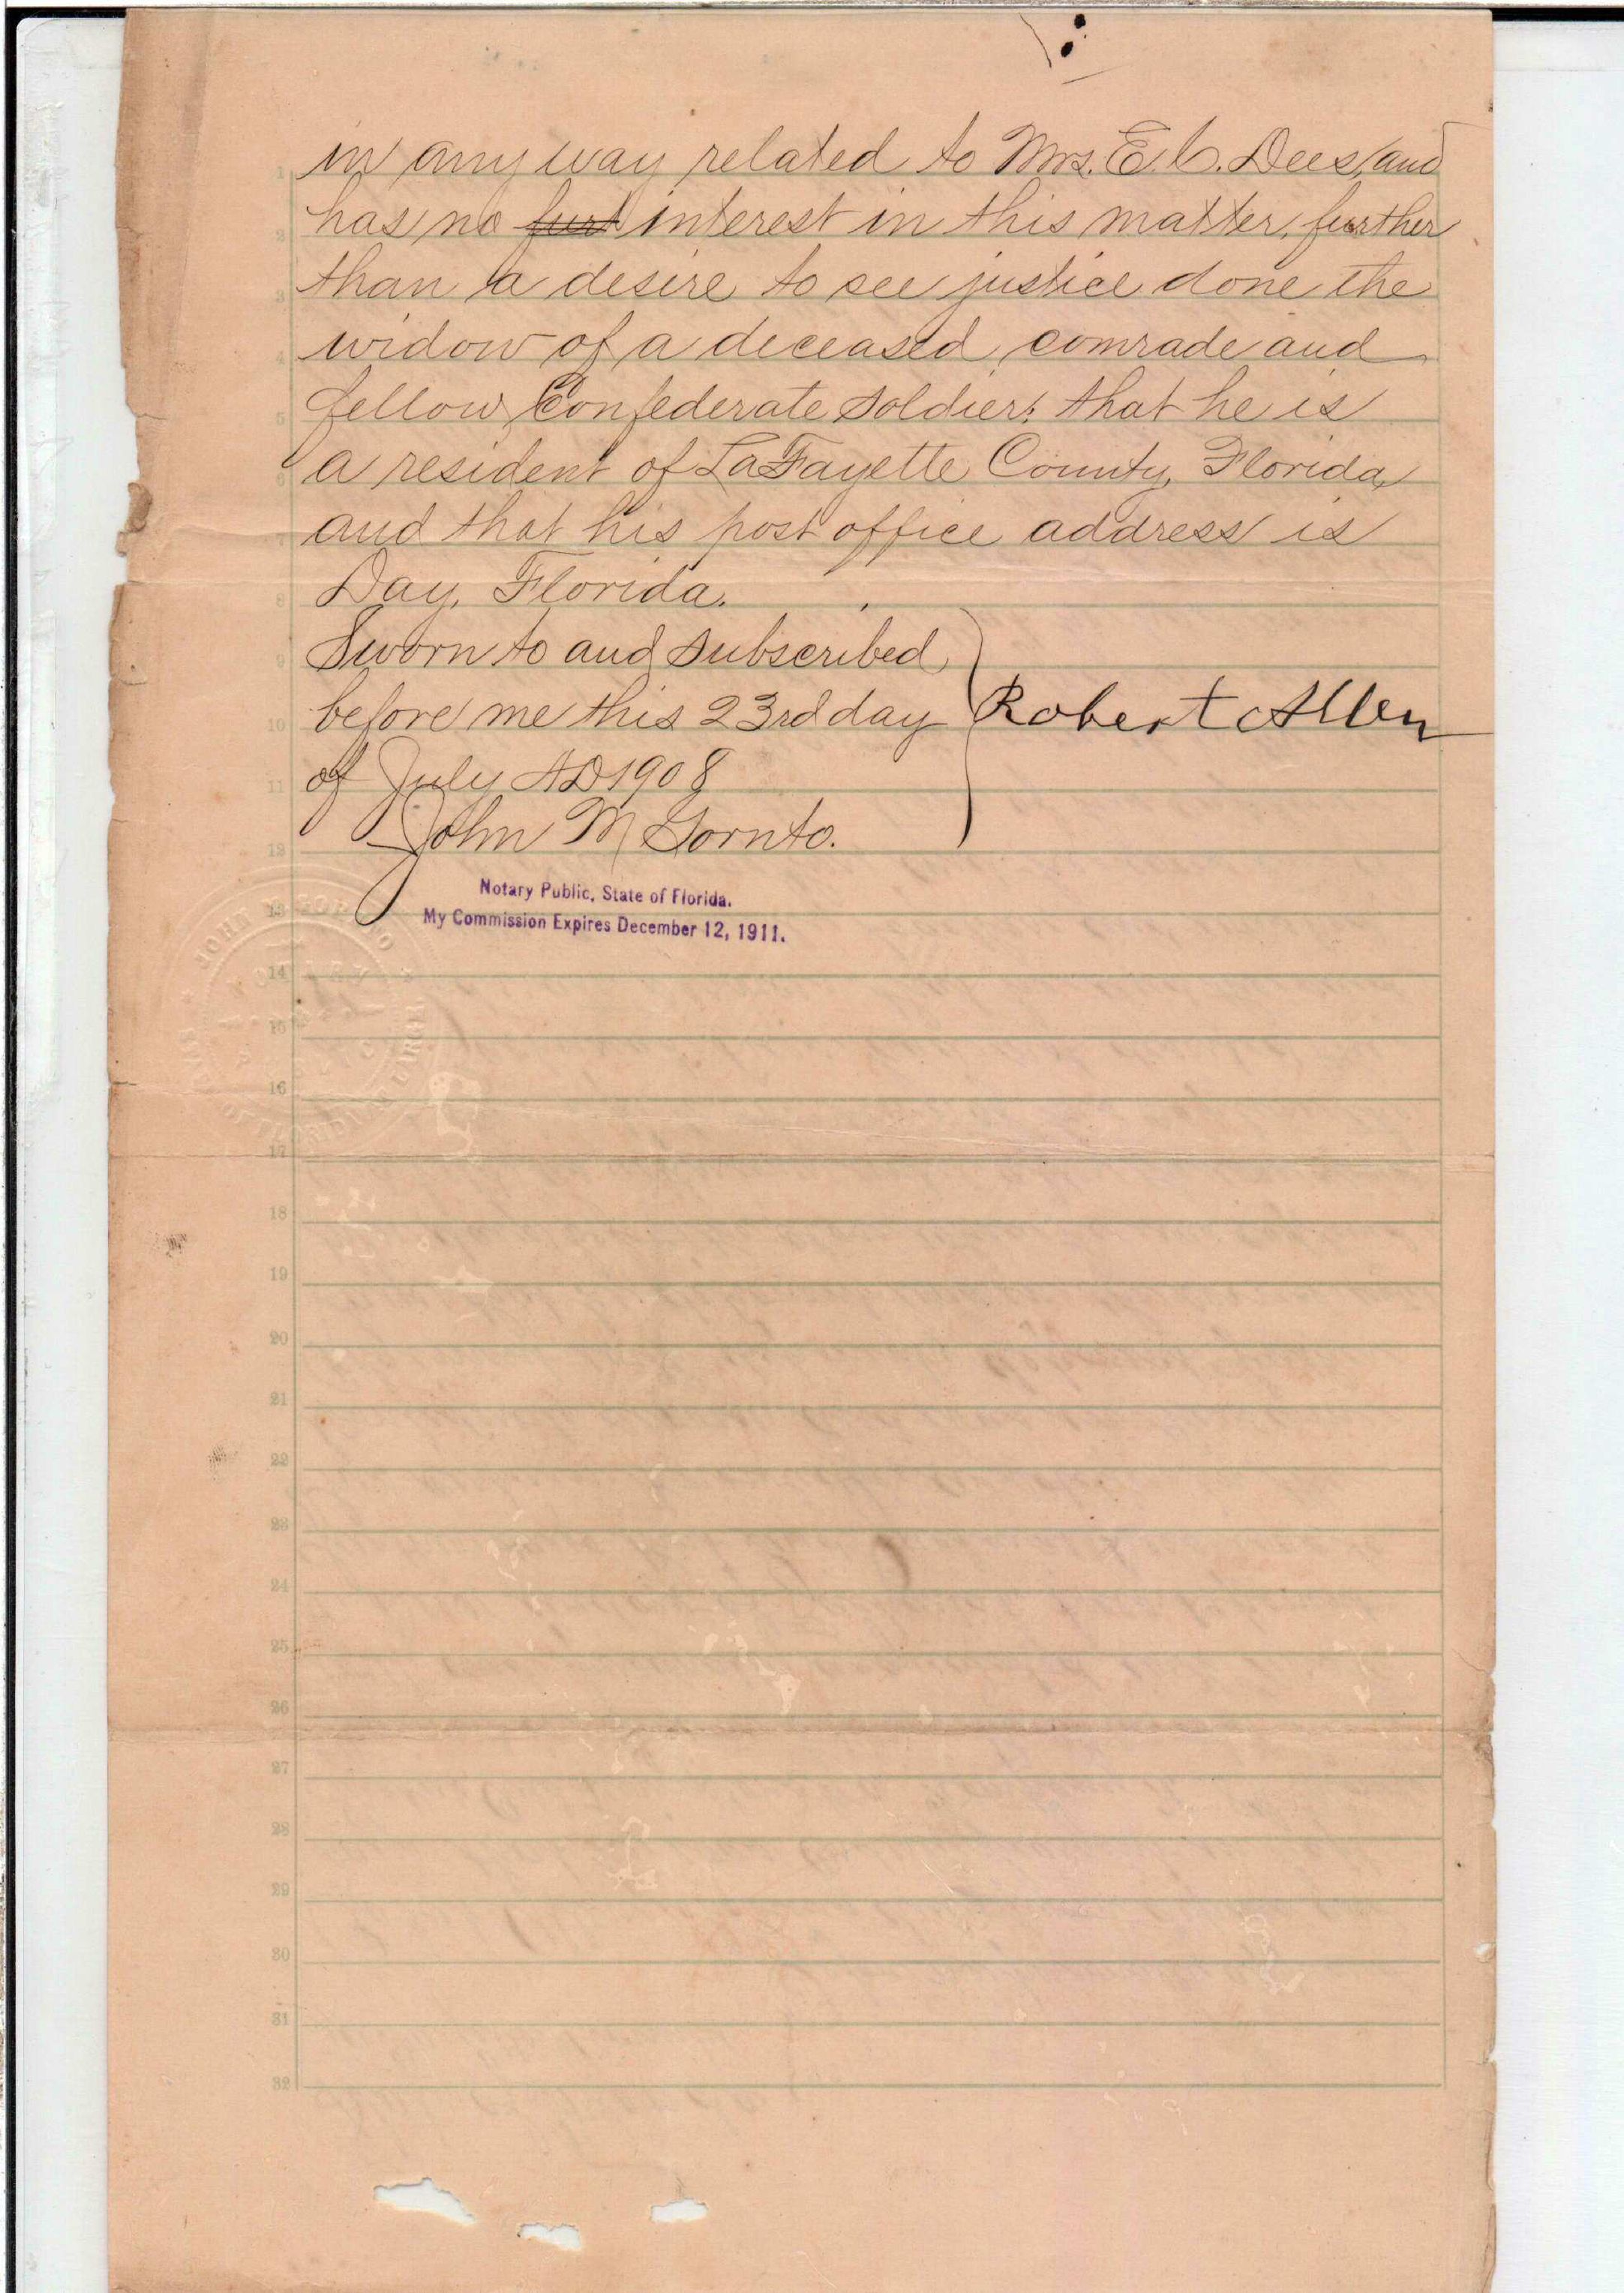 in any way related to Mrs. E. C. Dees, and
has no furt interest in this matter, further
than a desire to see justice done the
widow of a deceased comrade and
fellow Confederate soldier; that he is
a resident of LaFayette County, Florida,
and that his post office address is
Day, Florida.
Sworn to and subscribed
before me this 23rd day
of July AD 1908
Robert Allen
John M Gornto.
Notary Public, State of Florida.
My Commission Expires December 12, 1911.
1
2
3
4
5
6
7
8
9
10
11
12
13
14
15
16
17
18
19
20
21
22
23
24
25
26
27
28
29
30
31
32